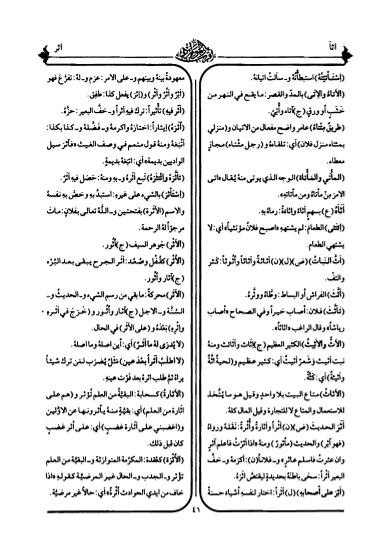 أثأ
اثر
(اِسْتَأتَيْتُهُ) اسْتبطَأتُهُ و ـ سألتُ اتيانهُ.
(الأتاءُ والإتى) بالمدّ والقصر: ما يقع في النهر من
خشَبٍ أو ورق (ج) آتاء وأُتِيّ.
(طريقٌ مِئتاءٌ) عامر واضح مفعال من الاتيان و (منزلي
بمئتاه منزل فلان) أي: تلقاءهُ و (رجل مئتاء) مجازٍ
معطاء.
(المأتي والمأتاة) الوجه الذي يوتى منهُ يُقال «أتى
الامرَ مِنْ مأتاهُ ومن مأتاتِهِ».
أثَأهُ (ع) بسهمٍ أثأً وإثاءَةً: رماهُ بهِ.
لم يشتهِ الطعام.
أثَّ النّباتُ (ض) (ل) (ن) أثاثةً وأثاثاً وأُثوثاً: كثر
والتفّ.
(أثّثَ) الفراش أو البساط: وطّأهُ ووثّرهُ.
(تأثّثَ) فلان: أصاب خيراً وفي الصحاح «أصاب
رياشاً» وقال الراغب «أثاثاً».
(الأثُّ والأثيثُ) الكثير العظيم (ج) إثاث وأثائث ومنهُ
نبت أثيث وشَعرٌ أثيثٌ أي: كثير عظيم و (لحيةٌ أثّةٌ
وأثيثةٌ) أي: كثّةٌ.
(الأثاثُ) متاع البيت بلا واحدٍ وقيل هو ما يُتّخذ
للاستعمال والمتاع لا للتجارة وقيل المال كلّهُ.
أثَرَ الحديثَ (ض) (ن) أثْراً وأثارةً وأُثْرَةً: نقلهُ ورواهُ
(أثِرَ على أصحابِهِ) (ل) أثراً: اختار لنفسهِ أشياء حسنةً
معهودةً بينهُ وبينهم و ـ على الامر: عزم و ـ لهُ: تفرّغ فهو
(أثِرٌ وأثُرٌ وآثِرٌ) و (إثرَ) يفعل كذا: طفِق.
(أثّرَ فيهِ) تأثيراً: ترك فيهِ أثراً و ـ خُفّ البعير: حزّهُ.
(آثرَهُ) إيثاراً: اختارهُ وأكرمهُ و ـ فضّلهُ و ـ كذا بكذا:
أتبعهُ ومنهُ قول متمم في وصف الغيث «فآثر سيل
الواديين بديمه» أي: أتبعهُ بديمةٍ.
(تأثّرَهُ وائْتَثَرَهُ) تبع أثَرَهُ و ـ بهِ ومنهُ: حصل فيهِ أثرٌ.
(اِستأثرَ) بالشيء على غيرهِ: استبدّ بهِ وخصّ بهِ نفسهُ
والاسم (الأثَرة) بفتحتين و ـ اللّهُ تعالى بفلان: مات
مرجوّاً لهُ الرحمة.
(الأثْرُ) جوهر السيف (ج) أُثور.
(الأُثْرُ) كقُفْل وصُمُد: أثر الجرح يبقى بعد البُرْء
(ج) آثار وأُثور.
(الأثَرُ) محركةً: ما بقي من رسم الشيء و ـ الحديث و ـ
السُنّة و ـ الأجل (ج) آثار وأُثور و (خرج في أثَرِهِ
وإثْرِهِ) بَعْدَهُ و (على الأثرِ) في الحال.
(لا يُدرى لهُ ما أثَرٌ) أي: أين اصلهُ وما اصلهُ.
(لا اطلبُ أثراً بعدَ عينٍ) مثلٌ يُضرب لمَن ترك شيئاً
يراهُ ثمّ طلب اثرهُ بعد فَوْت عينهِ.
(الأثارةُ) كسحابة: البقيّةُ من العلم تُؤثر و (هم على
اثارةٍ من العلم) أي: بقيّةٍ منهُ يأثرونها عن الأوّلين
و (اغضبني على أثارةِ غضبٍ) أي: على أثر غضبٍ
كان قبل ذلك.
(الأُثْرَة) كعُقدة: المكرمة المتوارثة و ـ البقيّة من العلم
تؤثر و ـ الجدب و ـ الحال غير المرضيّة كقولهِ «اذا
خاف من ايدي الحوادث أُثْرةً» أي: حالاً غير مرضيّة.
٤١